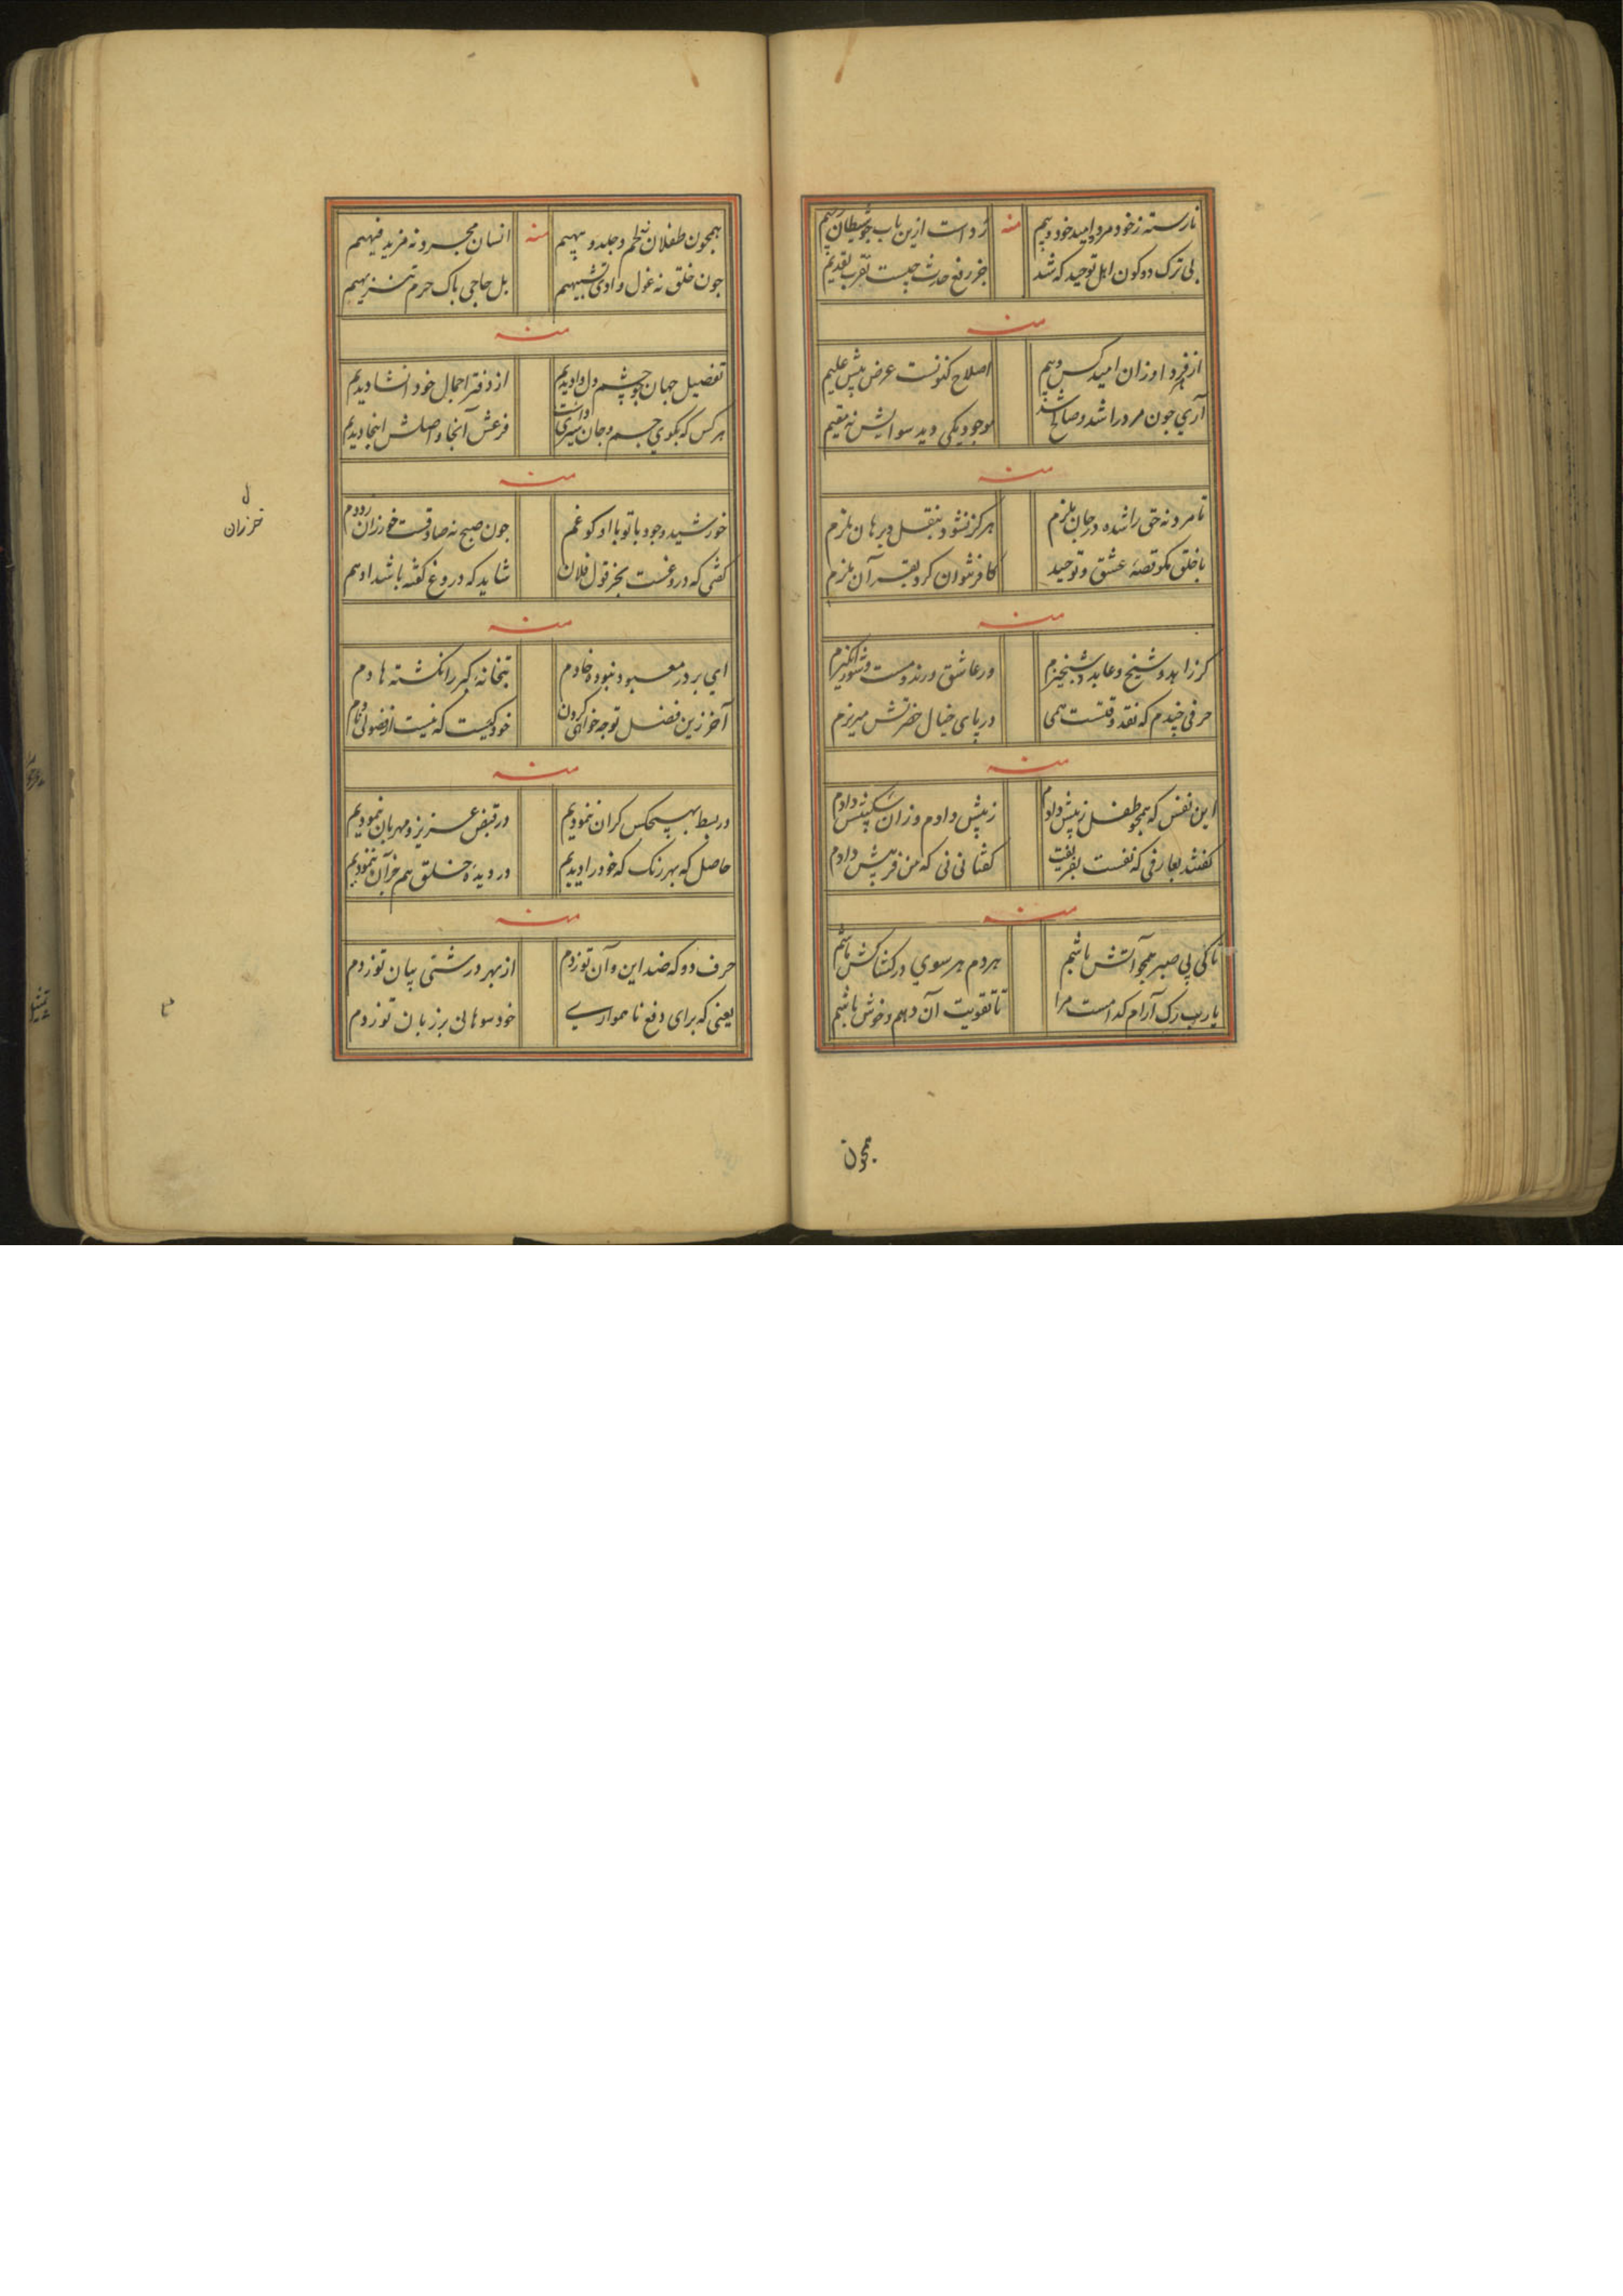 نارسته ز خود مرو امید خود و بیم منه رد است ازین باب چو شیطان رجیم
بی ترک دو کون اهل توحید که شد جز رفع حدث چیست تقرب بقدیم
منه
از او زان امید کس و بیم اصلاح کنونست عرض پیش علیم
آری جون مرد را شد موجود یکی دید سوایش نه مقیم
منه
تا مرد نه حق را شده در جان ملزم هرکز نشود بنقل و برهان ملزم
با خلق مکو قصهٔ عشق و توحید کافر نتوان کرد بقرآن ملزم
منه
کر زاهد و شیخ و عابد و شبخیزم ور عاشق و رند و مست و شورانکیزم
حرفی خیدم که نقد وقتست همی در پای خیال حضرتش میریزم
منه
این نفس که همچو طفل زیپش دادم زیپش دادم وزان شکیپش دادم
کفتند بعارفی که نفست بفریفت کفتا نی نی که من فریپش دادم
منه
تا کی پی صبر همچو آتش باشم هر دم هر سوی در کشاکش باشم
یارب رک آرام کدامست مرا تا تقویت آن دهم و خوش باشم
همچون
همچون طفلان نه لحم و جلد و پیهیم منه انسان مجرد و نه مزید فیهیم
جون خلق نه غول وادی تشبیهیم بل حاجی پاک حرم تنزیهیم
منه
تفصیل جهان چو چشم دل وا دیدیم از دفتر اجمال خود انشا دیدیم
هر کس که بکوی جسم و جان سیری داشت فرعش آنجا و اصلش اینجا دیدیم
منه
خورشید وجود با تو با او کو غم جون صبح نه صادقست خور زان رو دم
کفتی که دروغست بخر قول فلان شاید که دروغ کفته باشد او هم
منه
ای بر در معبود نبوده خادم بتخانهٔ کبر را نکشته هادم
آخر زین فضل توجه خواهی کردن خود کیست که نیست از فضولی نادم
منه
در بسط بهیچکس کران ننمودیم در قبض عزیز و مهربان ننمودیم
حاصل که بهر رنک که خود را دیدیم در دیدهٔ خلق هم جز آن ننمودیم
منه
حرف دو که ضد این و آن تو زدم از بهر درشتی بیان تو زدم
یعنی که برای دفع ناهمواری خود سوهانی بر زبان تو زدم
ل
خور زان